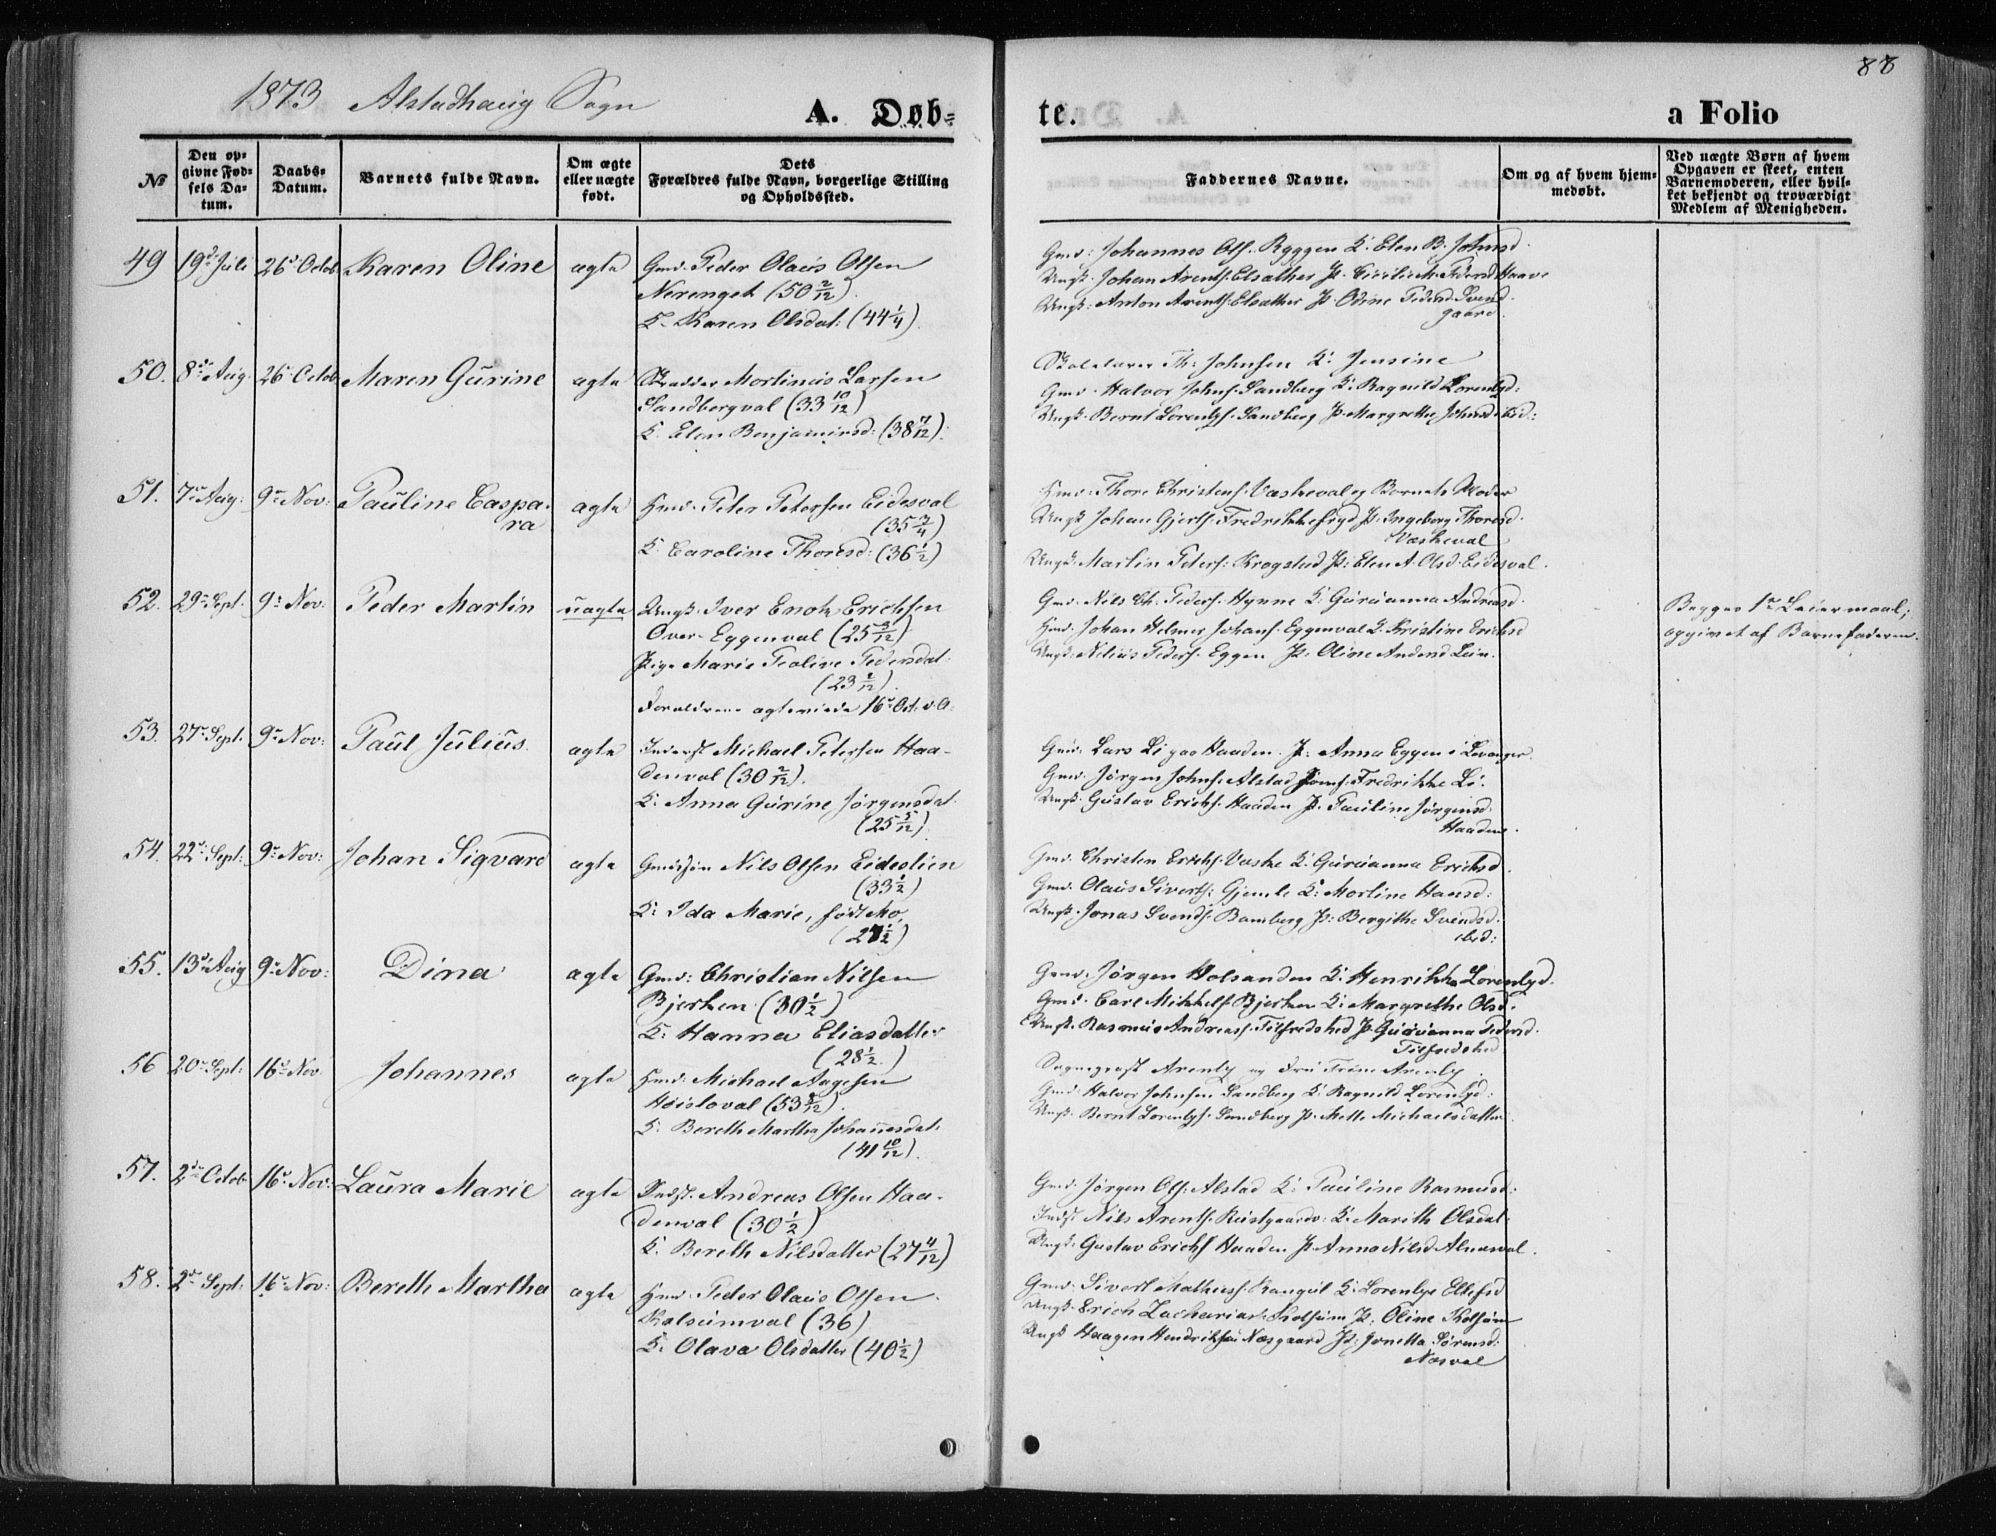 1873 Alstadhaug Sogn
A. Døb=
te.
a Folio
88
№
Den op=
givne Fød=
sels Da=
tum.
Daabs=
Datum.
Barnets fulde Navn.
Om ægte
eller uægte
født.
Dets
Forældres fulde Navn, borgerlige Stilling
og Opholdssted.
Faddernes Navne.
Om og af hvem hjem=
medøbt.
Ved uægte Børn af hvem
Opgaven er skeet, enten
Barnemoderen, eller hvil=
ket bekjendt og troværdigt
Medlem af Menigheden.
49 19de Juli 26de Octob Karen Oline ægte Gmd. Peder Olaus Olsen
Nerenget (50 2/12).
K. Karen Olsdat: (44 1/4).
Gmd: Johannes Ols. Ryggen K. Elen B. Johnsd.
Ungk. Johan Arents. Elsæther P. Cicilie M. Pedersd Haave
Ungk: Anton Arents. Elsæther P. Odine Pedersd. Svend
gaard.
50. 8de Aug. 26de Octob Maren Gurine ægte Skrædder Mortinus Larsen
Sandbergval (33 10/12)
K. Elen Benjaminsd: (38 7/12).
Skolelærer Th. Johnsen K. Jensine
Gmd. Halvor Johns. Sandberg K. Ragnild Lorentsd:
Ungk. Bernt Lorents. Sandberg P. Margrethe Johnsd ibid:
51. 7de Aug: 9de Nov: Pauline Caspa-
ra
ægte Hmd. Peter Petersen Eidesval
(35 3/4)
K. Caroline Thoresd: (36 1/2)
Hmd: Thore Christens. Væskeval og Barnets Moder
Ungk Johan Gjerts. Fredrikkefryd P. Ingeborg Thoresd.
Væskeval
Ungk: Martin Peters. Krogstad P: Elen A. Olsd. Eidesval.
52. 29de Sept. 9de Nov: Peder Martin uægte Ungk. Iver Enok Erichsen
Over-Eggenval (25 3/12)
Pige Marie Tealive Pedersdat.
(23 2/12).
Forældrene ægteviede 16de Oct. d. A.
Gmd. Nils Ch. Peders. Hynne K. Gurianna Andreasd.
Hmd. Johan Helmer Johans. Eggenval K. Kristine Erichsd
Ungk: Nilius Peders. Eggen P. Oline Andersd Lein.
Begges 1ste Leiermaal;
opgivet af Barnefaderen.
53. 27de Sept. 9de Nov: Paul Julius. ægte Inderst Michael Petersen Haa-
denval (30 2/12).
K. Anna Gurine Jørgensdat.
(25 5/12).
Gmd. Lars Li paa Haaden. P: Anna Eggen i Levanger.
Gmd. Jørgen Johns. Alstad Fredrikke Li.
Ungk: Gustav Erichs. Haaden P. Pauline Jørgensd.
Haaden.
54. 22de Sept: 9de Nov: Johan Sigvard ægte Nils Olsen Eideslien
(33 1/2)
K: Ida Marie, født Mo,
(27 1/2)
Gmd. Christen Erichs. Væske K. Gurianna Erichsd.
Gmd. Olaus Siverts: Gjemle K: Mortine Hansd:
Ungk. Jonas Svends. Bamberg P: Bergithe Svendsd.
ibid:
55. 13de Aug 9de Nov: Dina ægte Gmd: Christian Nilsen
Bjerken (30 1/2)
K: Hanna Eliasdatter
(28 1/2.)
Gmd. Jørgen Holsanden K. Henrikka Lorentsd.
Gmd. Carl Mikkels. Bjerken K. Margrethe Olsd.
Ungk. Rasmus Andreas. Tilfredshed P. Gurianna Pedersd.
Tilfredshed
56 20de Sept: 16de Nov. Johannes ægte Hmd: Michael Aagesen
Hoisloval (53 8/12).
K. Bereth Martha Johannesdat.
(41 10/12).
Sogneprest Arentz og Fru Trine Arentz.
Gmd. Halvor Johnsen Sandberg K. Ragnild Lorentsd:
Ungk. Bernt Lorents. Sandberg P. Mette Michaelsdatter
57. 2de Octob 16de Nov: Laura Marie ægte Indst. Andreas Olsen Haa-
denval (30 1/2)
K. Bereth Nilsdatter (27 4/12)
Gmd. Jørgen Ols. Alstad K: Pauline Rasmusd:
Indst Nils Arents. Rustgaardv: K. Marith Olsdat.
Ungk. Gustav Erichs Haaden P. Anna Nilsd Alnesval.
58. 2de Sept: 16de Nov: Bereth Martha ægte Hmd. Peder Olaus Olsen
Kolsumval (36)
K. Olava Olsdatter (40 1/2)
Gmd. Sivert Mathies. Rangul K. Lorentse Ellefsd
Ungk. Erich Zacharias. Kolsum P: Oline Kolsum
Ungk Haagen Hendriksen Næsgaard P: Jonetta Sørensd:
Næsval